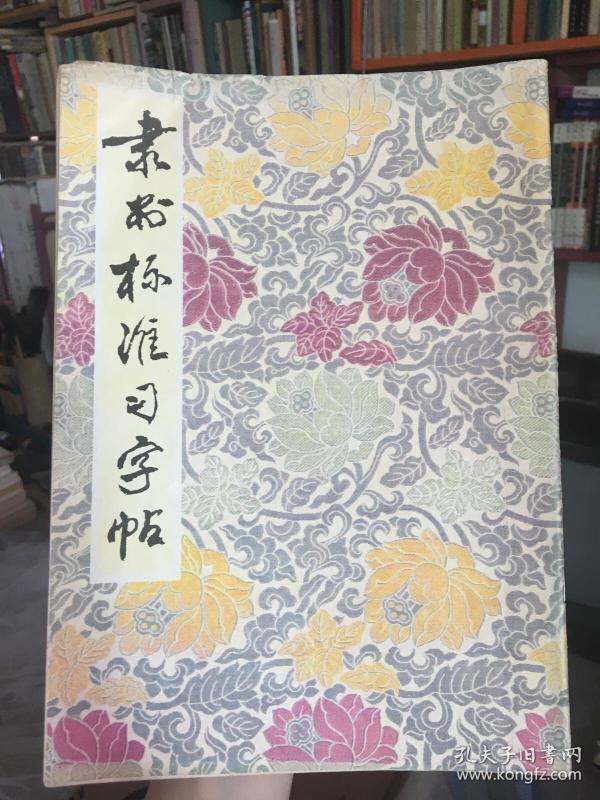 隶书标准习字帖
孔夫子旧書网
www.kongfz.com